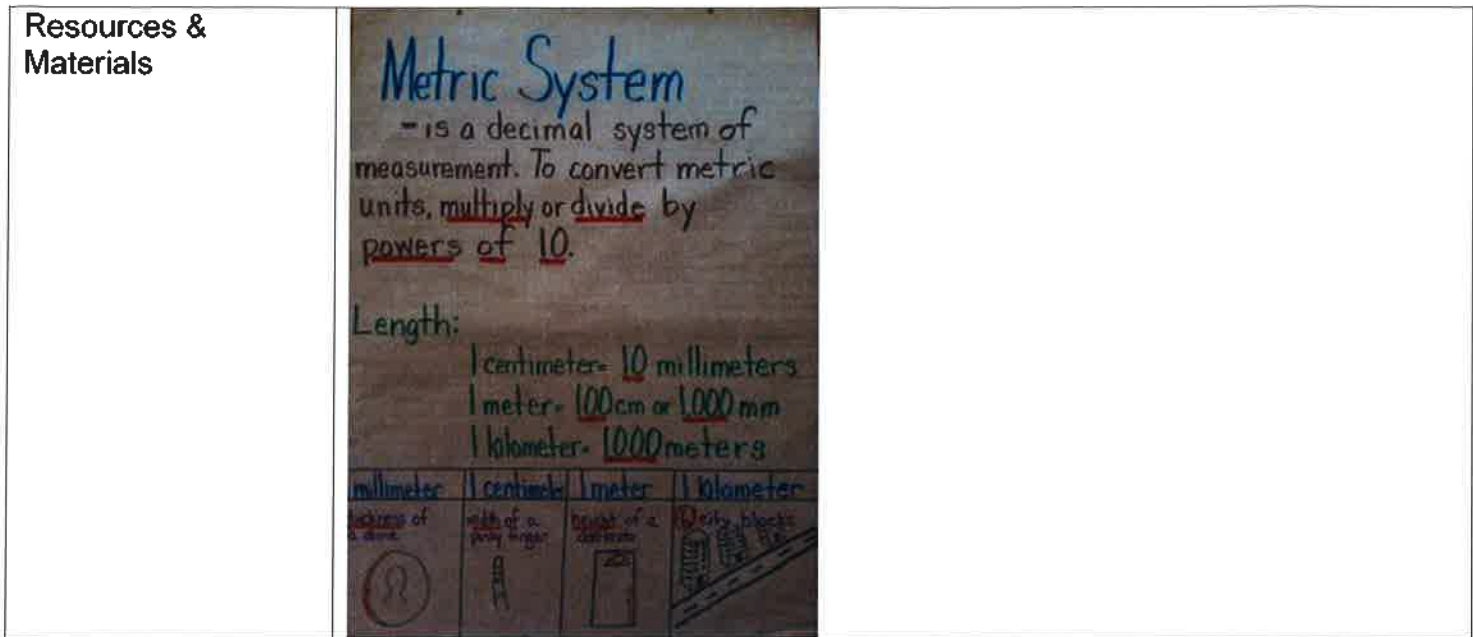 Resources &
Materials
Metric System
- is a decimal system of
measurement. To convert metric
units, multiply or divide by
powers of 10.
Length:
1 centimeter= 10 millimeters
1 meter= 100cm or 1,000 mm
1 kilometer= 1000 meters
millimeter 1 centimeter 1 meter 1 kilometer
thickness of width of a height of a city blocks
a dime pinky finger